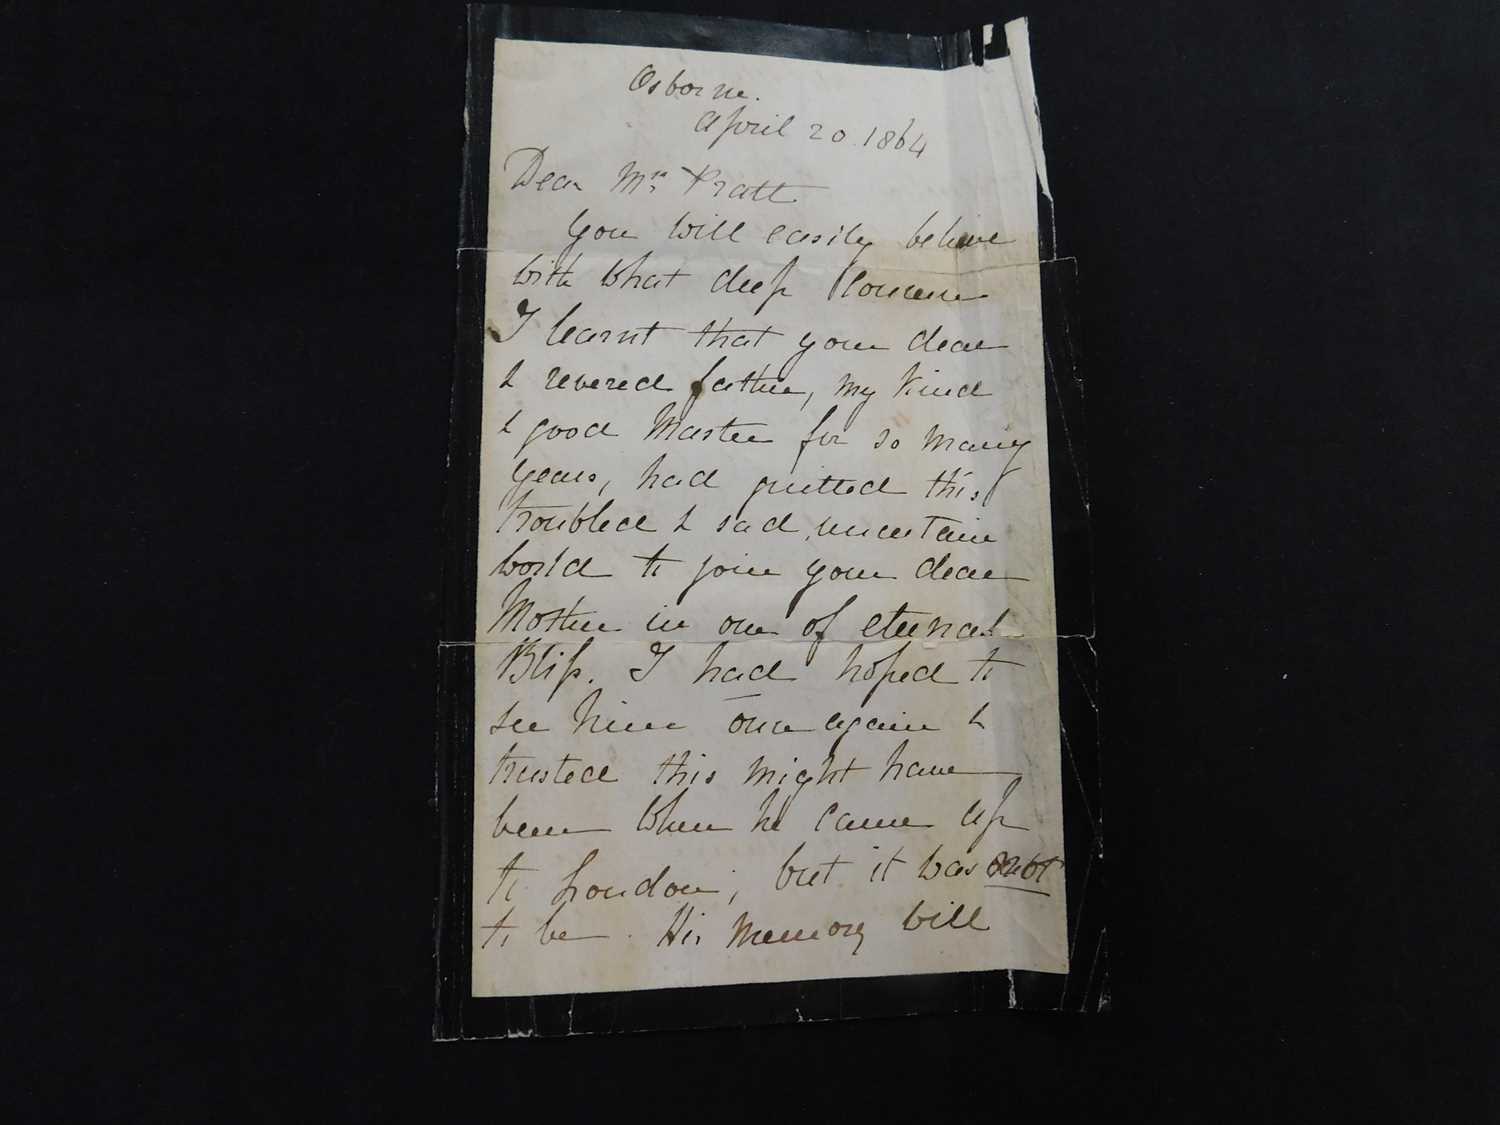 Osborne.
April 20. 1864
Dear Mrs Pratt
You will easily believe
with what deep concern
I learnt that your dear
& revered father, my kind
& good Master for so many
years, had quitted this
troubled & sad, uncertain
world to join your dear
Mother in one of eternal
Bliss. I had hoped to
see him once again &
trusted this might have
been when he came up
to London; but it was not
to be. His memory will